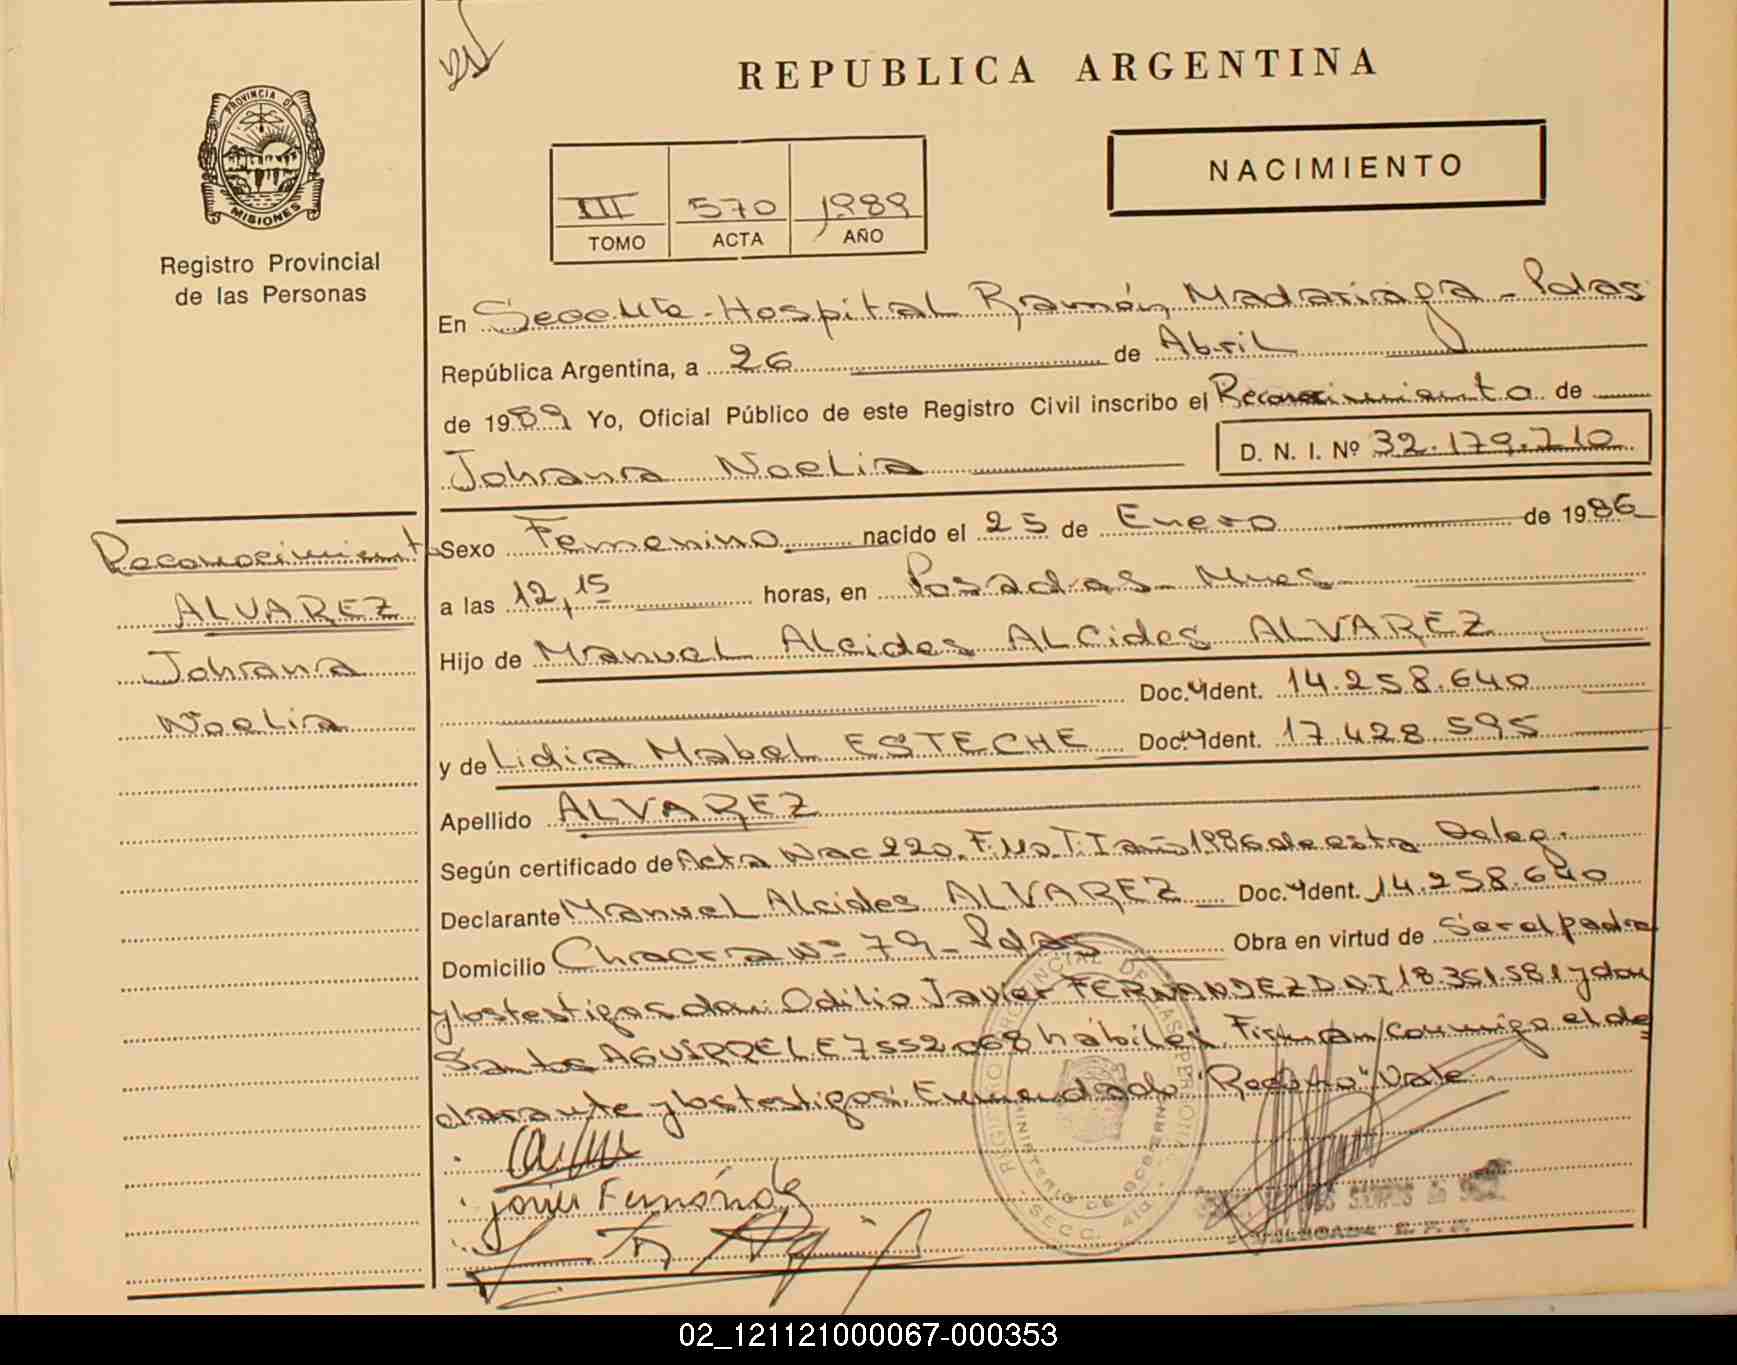 REPUBLICA ARGENTINA
PROVINCIA DE
MISIONES
Registro Provincial
de las Personas
NACIMIENTO
III 570 1989
TOMO ACTA AÑO
En Secc 4ta - Hospital Ramón Madariaga - Pdas
República Argentina, a 26 de Abril
de 1989 Yo, Oficial Público de este Registro Civil inscribo el Reconocimiento de
Johana Noelia D. N. I. Nº 32.179.710
Reconocimiento
ALVAREZ
Johana
Noelia
Sexo Femenino nacido el 25 de Enero de 1986
a las 12,15 horas, en Posadas - Mnes
Hijo de Manuel Alcides ALCides ALVAREZ
Doc. Ident. 14.258.640
y de Lidia Mabel ESTECHE Doc. Ident. 17.428.595
Apellido ALVAREZ
Según certificado de Acta Nac 220. F. 110. T. I año 1986 de esta Deleg.
Declarante Manuel Alcides ALVAREZ Doc. Ident. 14.258.640
Domicilio Chacra Nº 79 - Pdas Obra en virtud de Ser el padre
y los testigos don: Odilio Javier FERNANDEZ DNI 18.351.581 y don
Santos AGUIRRE LE 7552068 hábiles. Firman conmigo el de
clarante y los testigos. Enmendado "Recono" Vale
Javier Fernández
REGISTRO PROVINCIAL DE LAS PERSONAS
MINISTERIO DE GOBIERNO
SECC. 4ta
DELEGADA R. P. P.
02_121121000067-000353